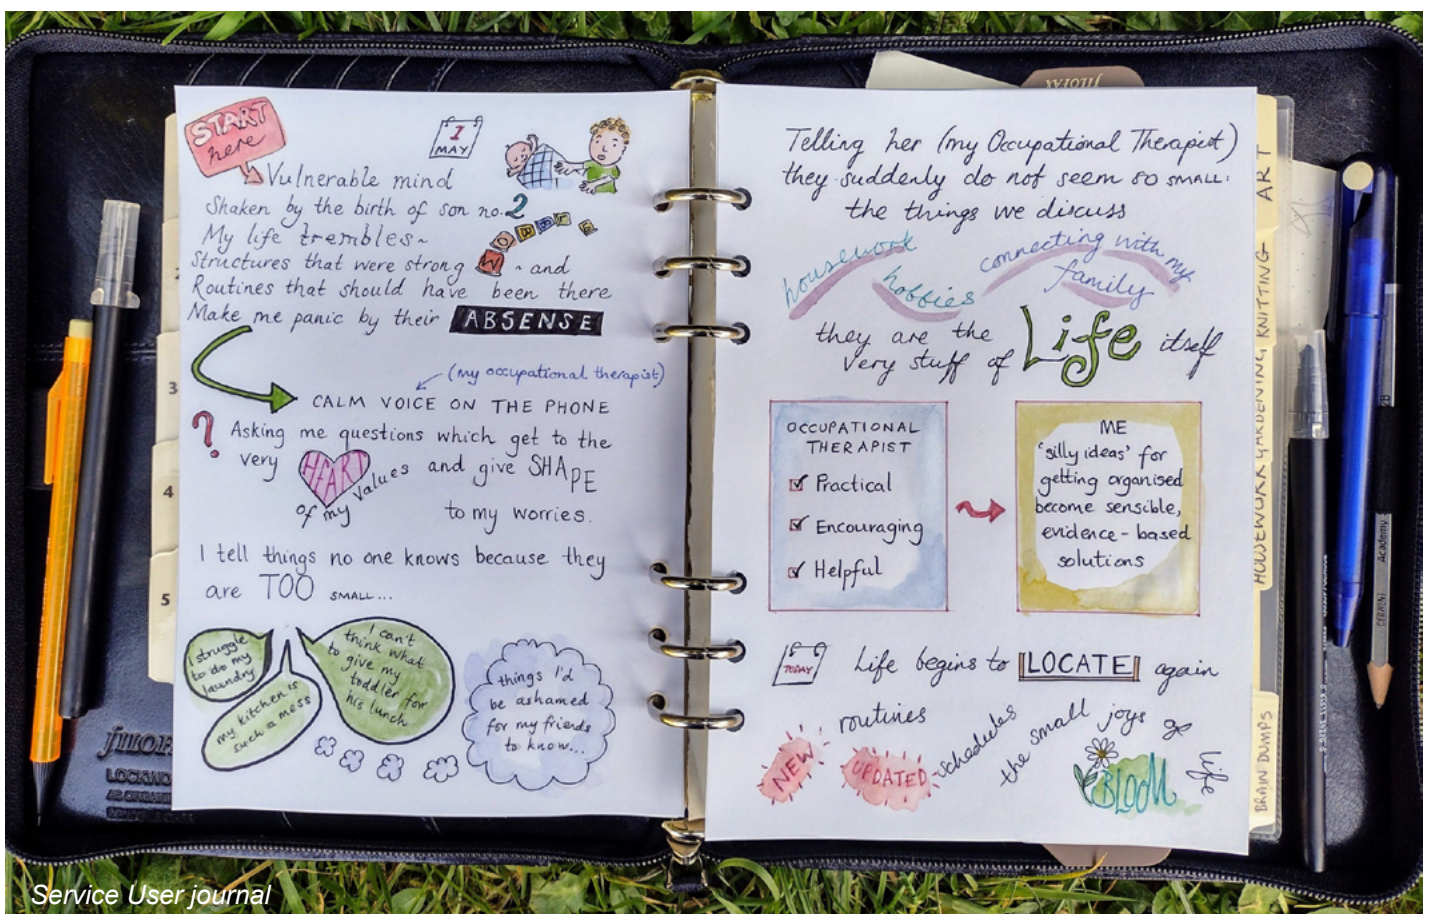 START
here
1
MAY
Vulnerable mind
Shaken by the birth of son no. 2
My life trembles~
Structures that were strong ~ and
Routines that should have been there
Make me panic by their ABSENSE
(my occupational therapist)
CALM VOICE ON THE PHONE
? Asking me questions which get to the
very HEART of my values and give SHAPE
to my worries.
I tell things no one knows because they
are TOO SMALL...
I struggle
to do my
laundry
my kitchen is
such a mess
I can't
think what
to give my
toddler for
his lunch
things I'd
be ashamed
for my friends
to know...
Telling her (my Occupational Therapist)
they suddenly do not seem so SMALL:
the things we discuss
housework
hobbies
connecting with my
family
they are the
very stuff of Life itself
OCCUPATIONAL
THERAPIST
Practical
Encouraging
Helpful
ME
'silly ideas' for
getting organised
become sensible,
evidence-based
solutions
TODAY
Life begins to LOCATE again
NEW routines
UPDATED schedules
the small joys of life
BLOOM
ART
KNITTING
GARDENING
HOUSEWORK
BRAIN DUMPS
3
4
5
filofax
LOCKWO
Academy
Service User journal